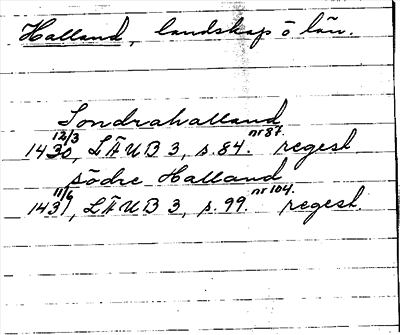 Halland, landskap o län.
Sondrahalland
1430 12/3, LÄUB 3, s. 84. nr 87. regest
södre Halland
1431 11/6, LÄUB 3, s. 99. nr 104. regest.